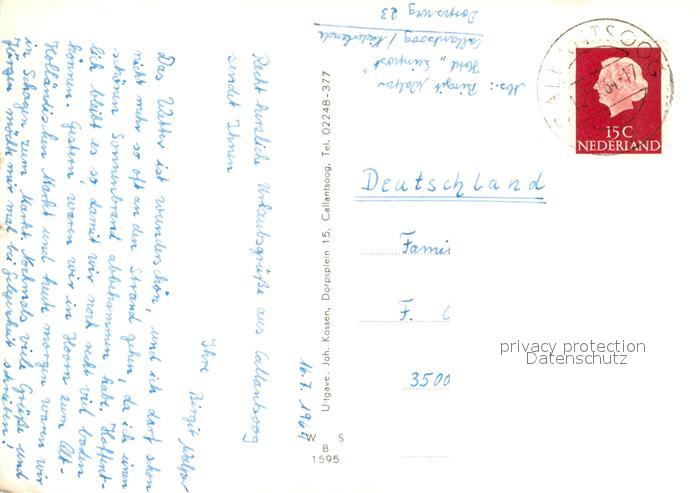 16.7.1964
Recht herzliche Urlaubsgrüße aus Callantsoog
sendet Ihnen
Ihre Birgit
Das Wetter ist wunderschön, und ich darf schon
nicht mehr so oft an den Strand gehen, da ich einen
schönen Sonnenbrand abbekommen habe. Hoffent-
lich bleibt es so damit wir noch recht viel baden
können. Gestern waren wir in Hoorn zum Alt-
Holländischen Markt und heute morgen waren wir
in Schagen zum Markt. Nochmals viele Grüße und
Jürgen möchte mir mal bei Gelegenheit schreiben!
Uitgave: Joh. Kossen, Dorpsplein 15, Callantsoog, Tel. 02248-377
W S
B
1595
Abs.: Birgit
Hotel „
Callantsoog / Niederlande
Dorpsweg 23
CALLANTSOOG
15 C
NEDERLAND
Deutschland
Fami
F. C
3500
privacy protection
Datenschutz